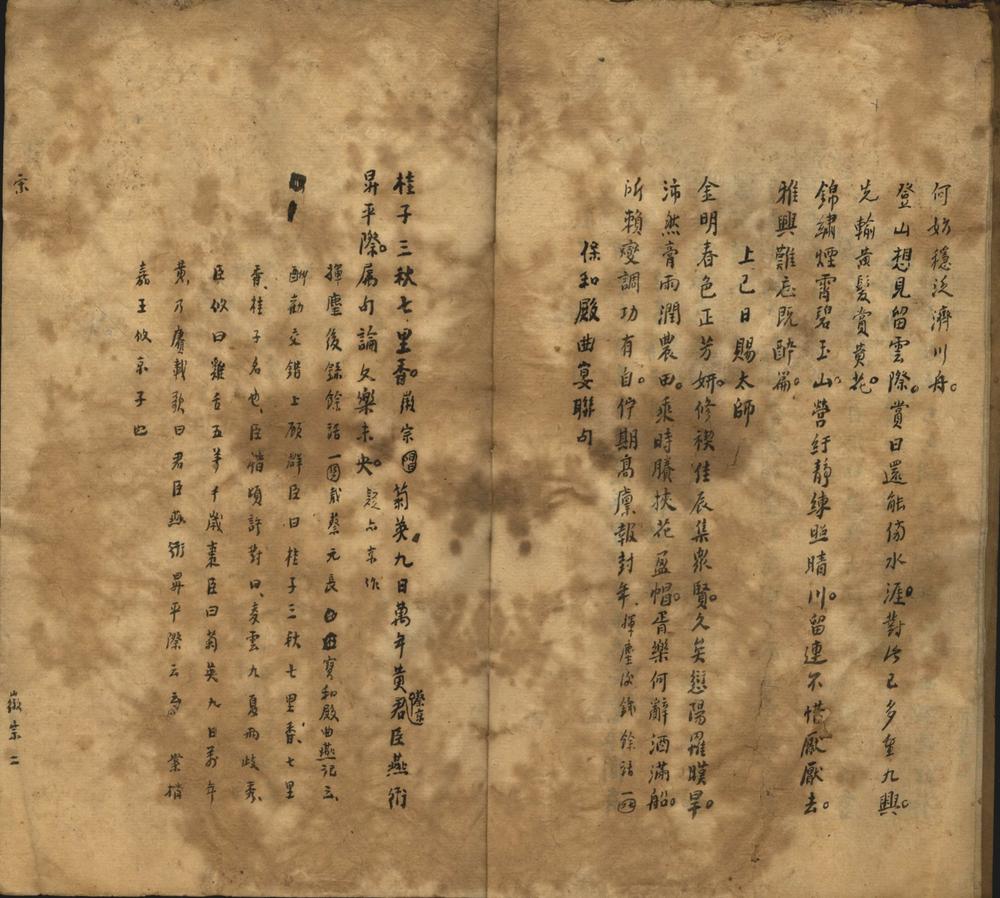 何如穩泛濟川舟。
登山想見留雲際。賞日還能傍水涯。對此已多重九興。
先輸黃髮賞黃花。
錦繡煙霄碧玉山。營紆靜練照晴川。留連不惜厭厭去。
雅興難忘既醉篇。
上巳日賜太師
金明春色正芳妍。修禊佳辰集眾賢。久矣愆陽罹暵旱。
沛然膏雨潤農田。乘時賸挾花盈帽。胥樂何辭酒滿船。
所賴變調功有自。佇期高廩報封年。揮麈後錄餘話一
保和殿曲宴聯句
桂子三秋七里香。徽宗 菊英九日萬年黃 蔡京 君臣燕衎
昇平際。屬句論文樂未央。疑亦京作
揮麈後錄餘話一載蔡元長 保和殿曲燕記云、
酬勸交錯上顧群臣曰桂子三秋七里香、七里
香、桂子名也、臣楷頃許對曰、麥雲九夏兩歧秀、
臣攸曰雞舌五年千歲棗臣曰菊英九日萬年
黃乃賡載歌曰君臣燕衎昇平際云云 案楷
嘉王攸京子也
宗
徽宗 二